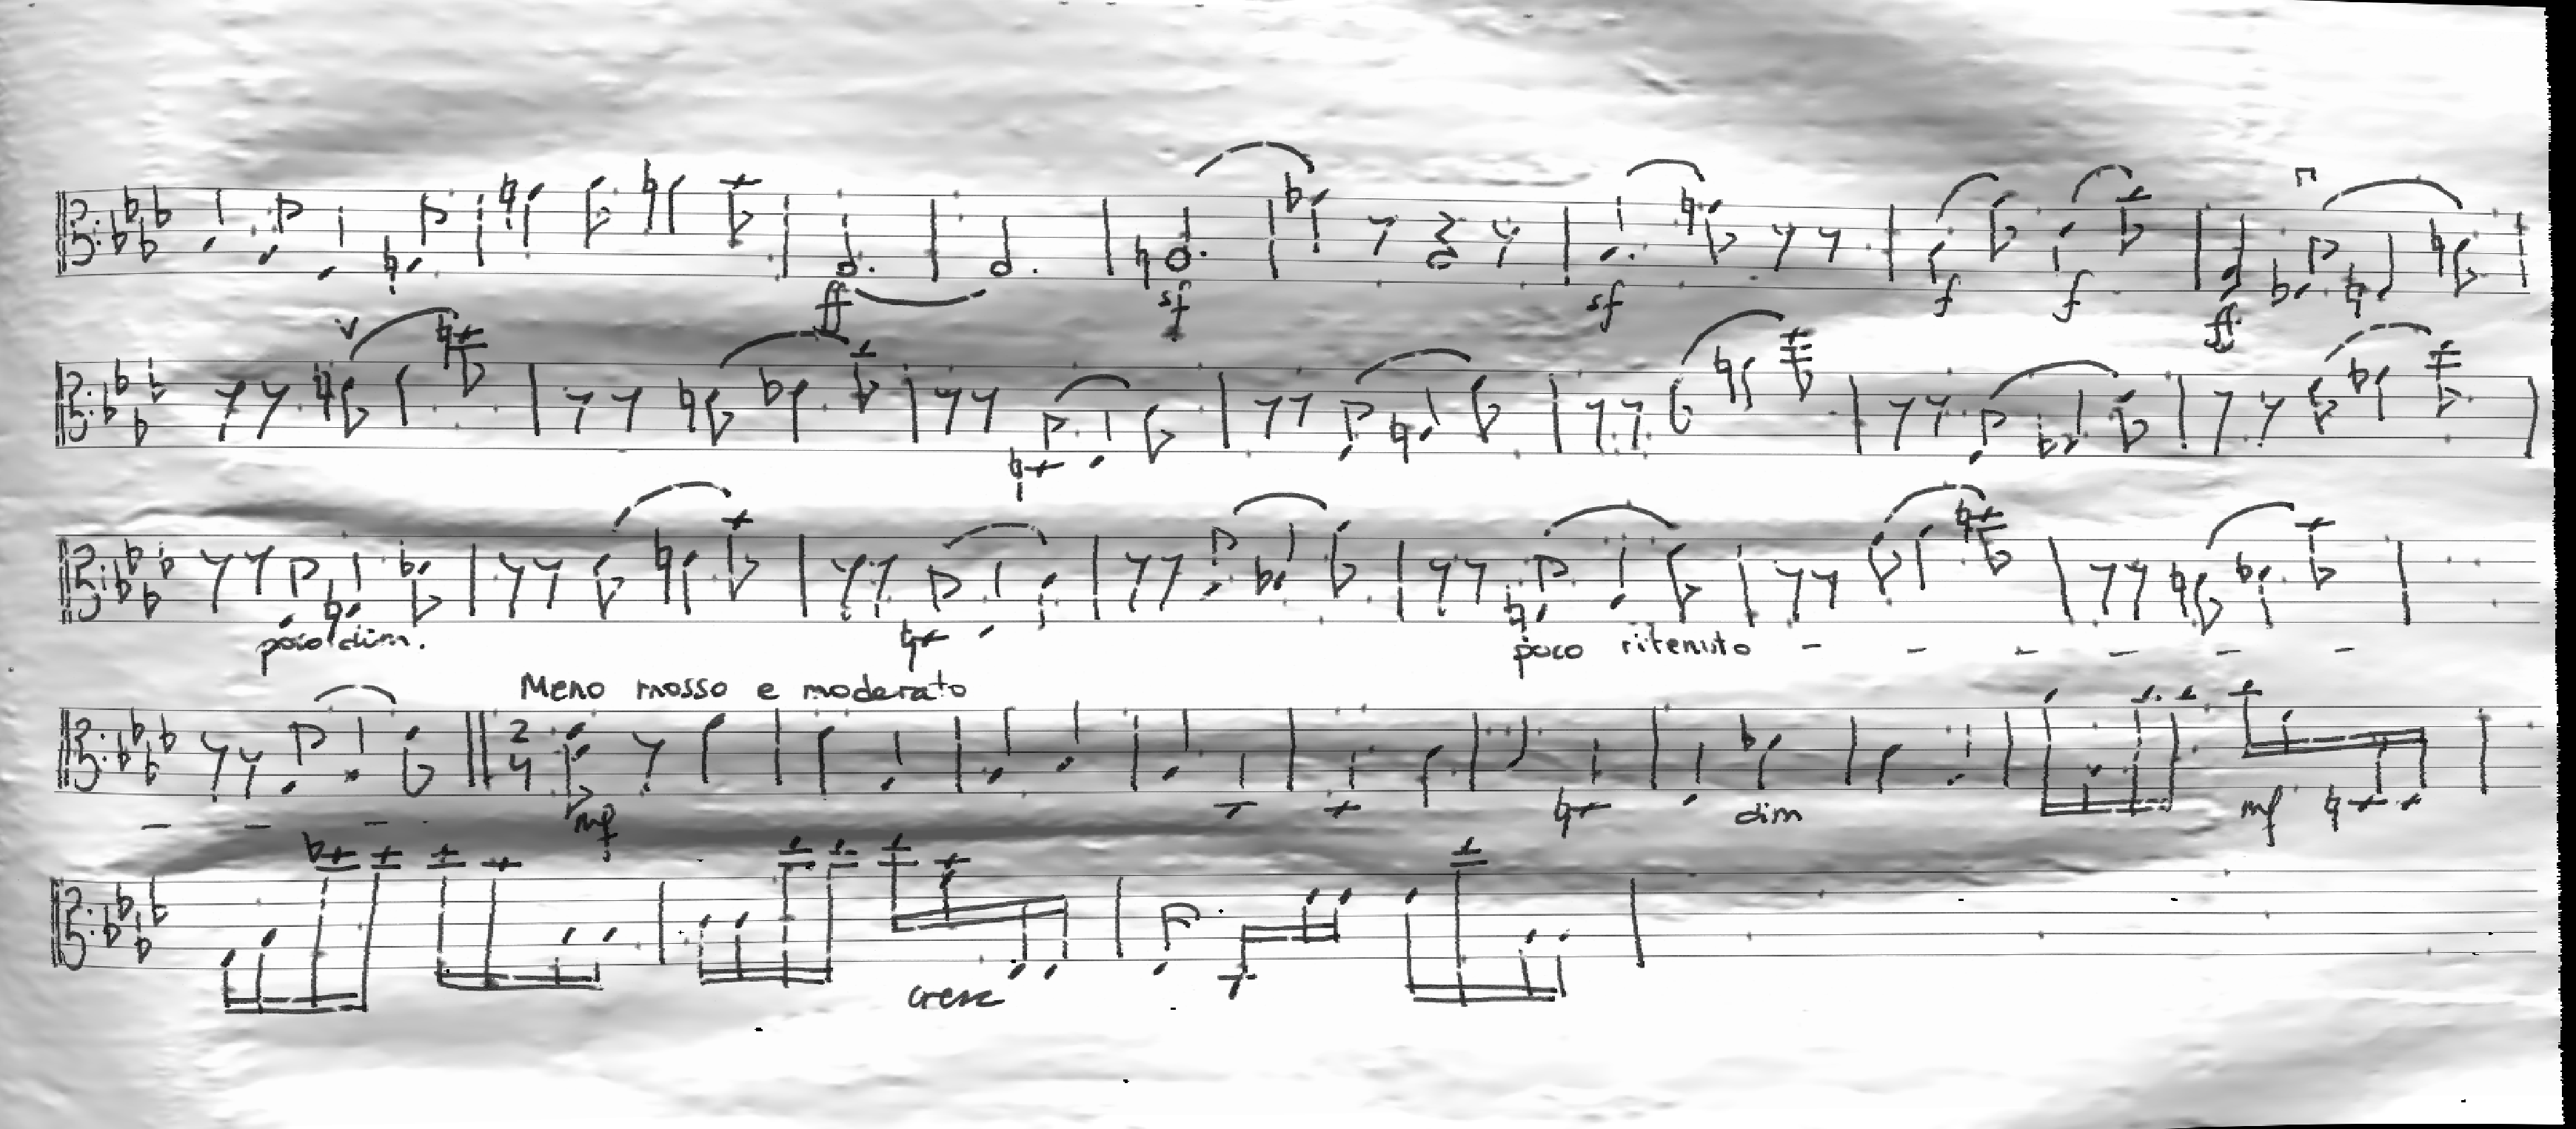 ff sf sf f f ff
poco dim. poco ritenuto
Meno mosso e moderato
2
4
mp dim mf
cresc